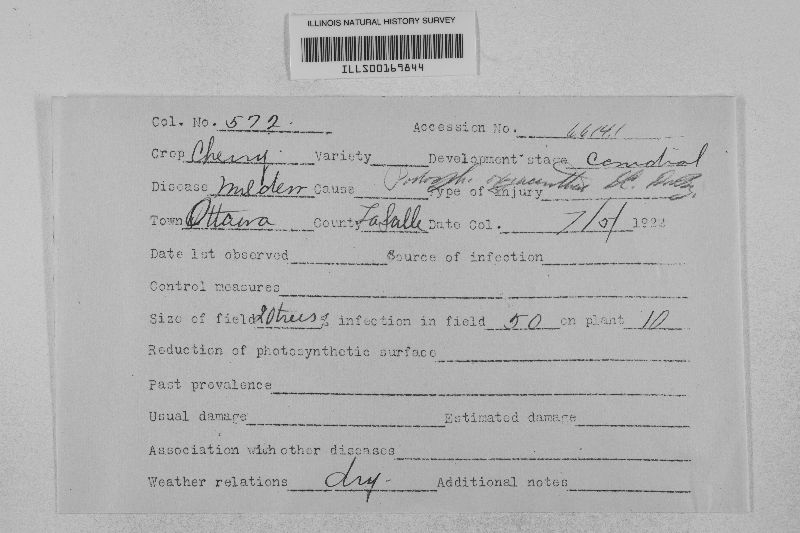 ILLINOIS NATURAL HISTORY SURVEY
ILLS00169844
Col. No. 572. Accession No. 66141
Crop Cherry Variety Development stage Conidial
Disease Mildew Cause Podosph. oxyacanthae Type of injury
Town Ottawa County LaSalle Date Col. 7/5/ 1922
Date 1st observed Source of infection
Control measures
Size of field 20 trees % infection in field 50 on plant 10
Reduction of photosynthetic surface
Past prevalence
Usual damage Estimated damage
Association with other diseases
Weather relations dry. Additional notes